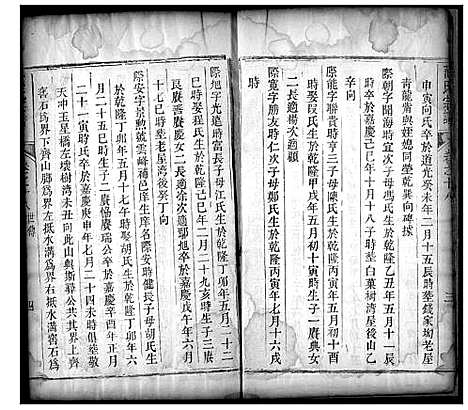 申寅向氏卒於道光癸未年二月十五辰時塟錢家坳老屋
青龍嘴與姪媳同塋乾巽向碑據
際朝字開宏時宜次子母馮氏生於乾隆乙丑年五月十一辰
時卒於嘉慶己巳年十月十八子時塟白菓樹湾屋後山乙
辛向
際能字聯貴時亨三子母陳氏生於乾隆丙寅年五月初十
時娶段氏生於乾隆甲戌年五月初十寅時生子一賡興女
二長適楊次適顧
際寬字勝友時仁次子母鄭氏生於乾隆丙寅年七月十六戌
時
際旭字光遠時富長子母江氏生於乾隆丁卯年五月二十二
巳時娶程氏生於乾隆己巳年二月二十九亥時生子三賡
良賡善賡慶女一適江次適鄢旭卒於嘉慶戊午年六月
時塟老星湾後癸丁向
際安字景動號雲峰補邑庠生時健長子母胡氏生
於乾隆丁卯年五月十七午時娶胡氏生於乾隆丁卯年六
月二十五巳時生子一賡瑞公卒於嘉慶辛酉年正月
二十一寅時氏卒於嘉慶庚申年七月二十四未時俱塟敬
天冲玉星橋左壊樹湾未丑向此山與斯尋公共其界上齊
窖石為界下齊山脚為界左抵水溝為界右抵水溝窖石為
世傳
四